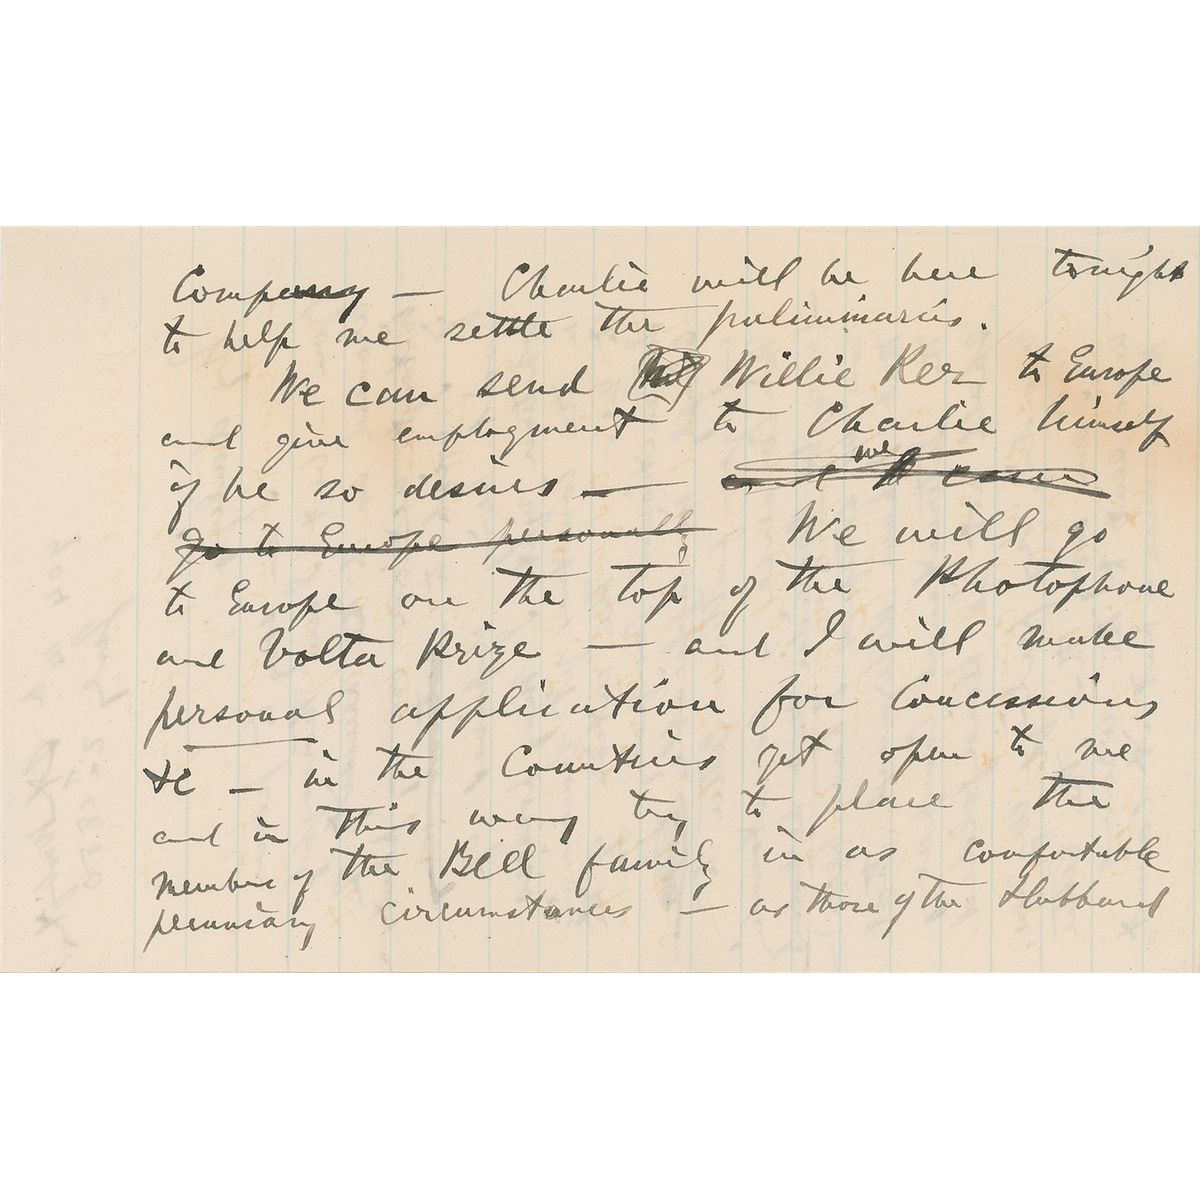 Company — Charlie will be here tonight
to help me settle the preliminaries.
We can send Willie Ker to Europe
and give employment to Charlie himself
if he so desires — and we can
go to Europe personally We will go
to Europe on the top of the Photophone
and Volta Prize — and I will make
personal application for Concessions
&c — in the Countries yet open to me
and in this way try to place the
members of the Bell family in as comfortable
pecuniary circumstances — as those of the Hubbard